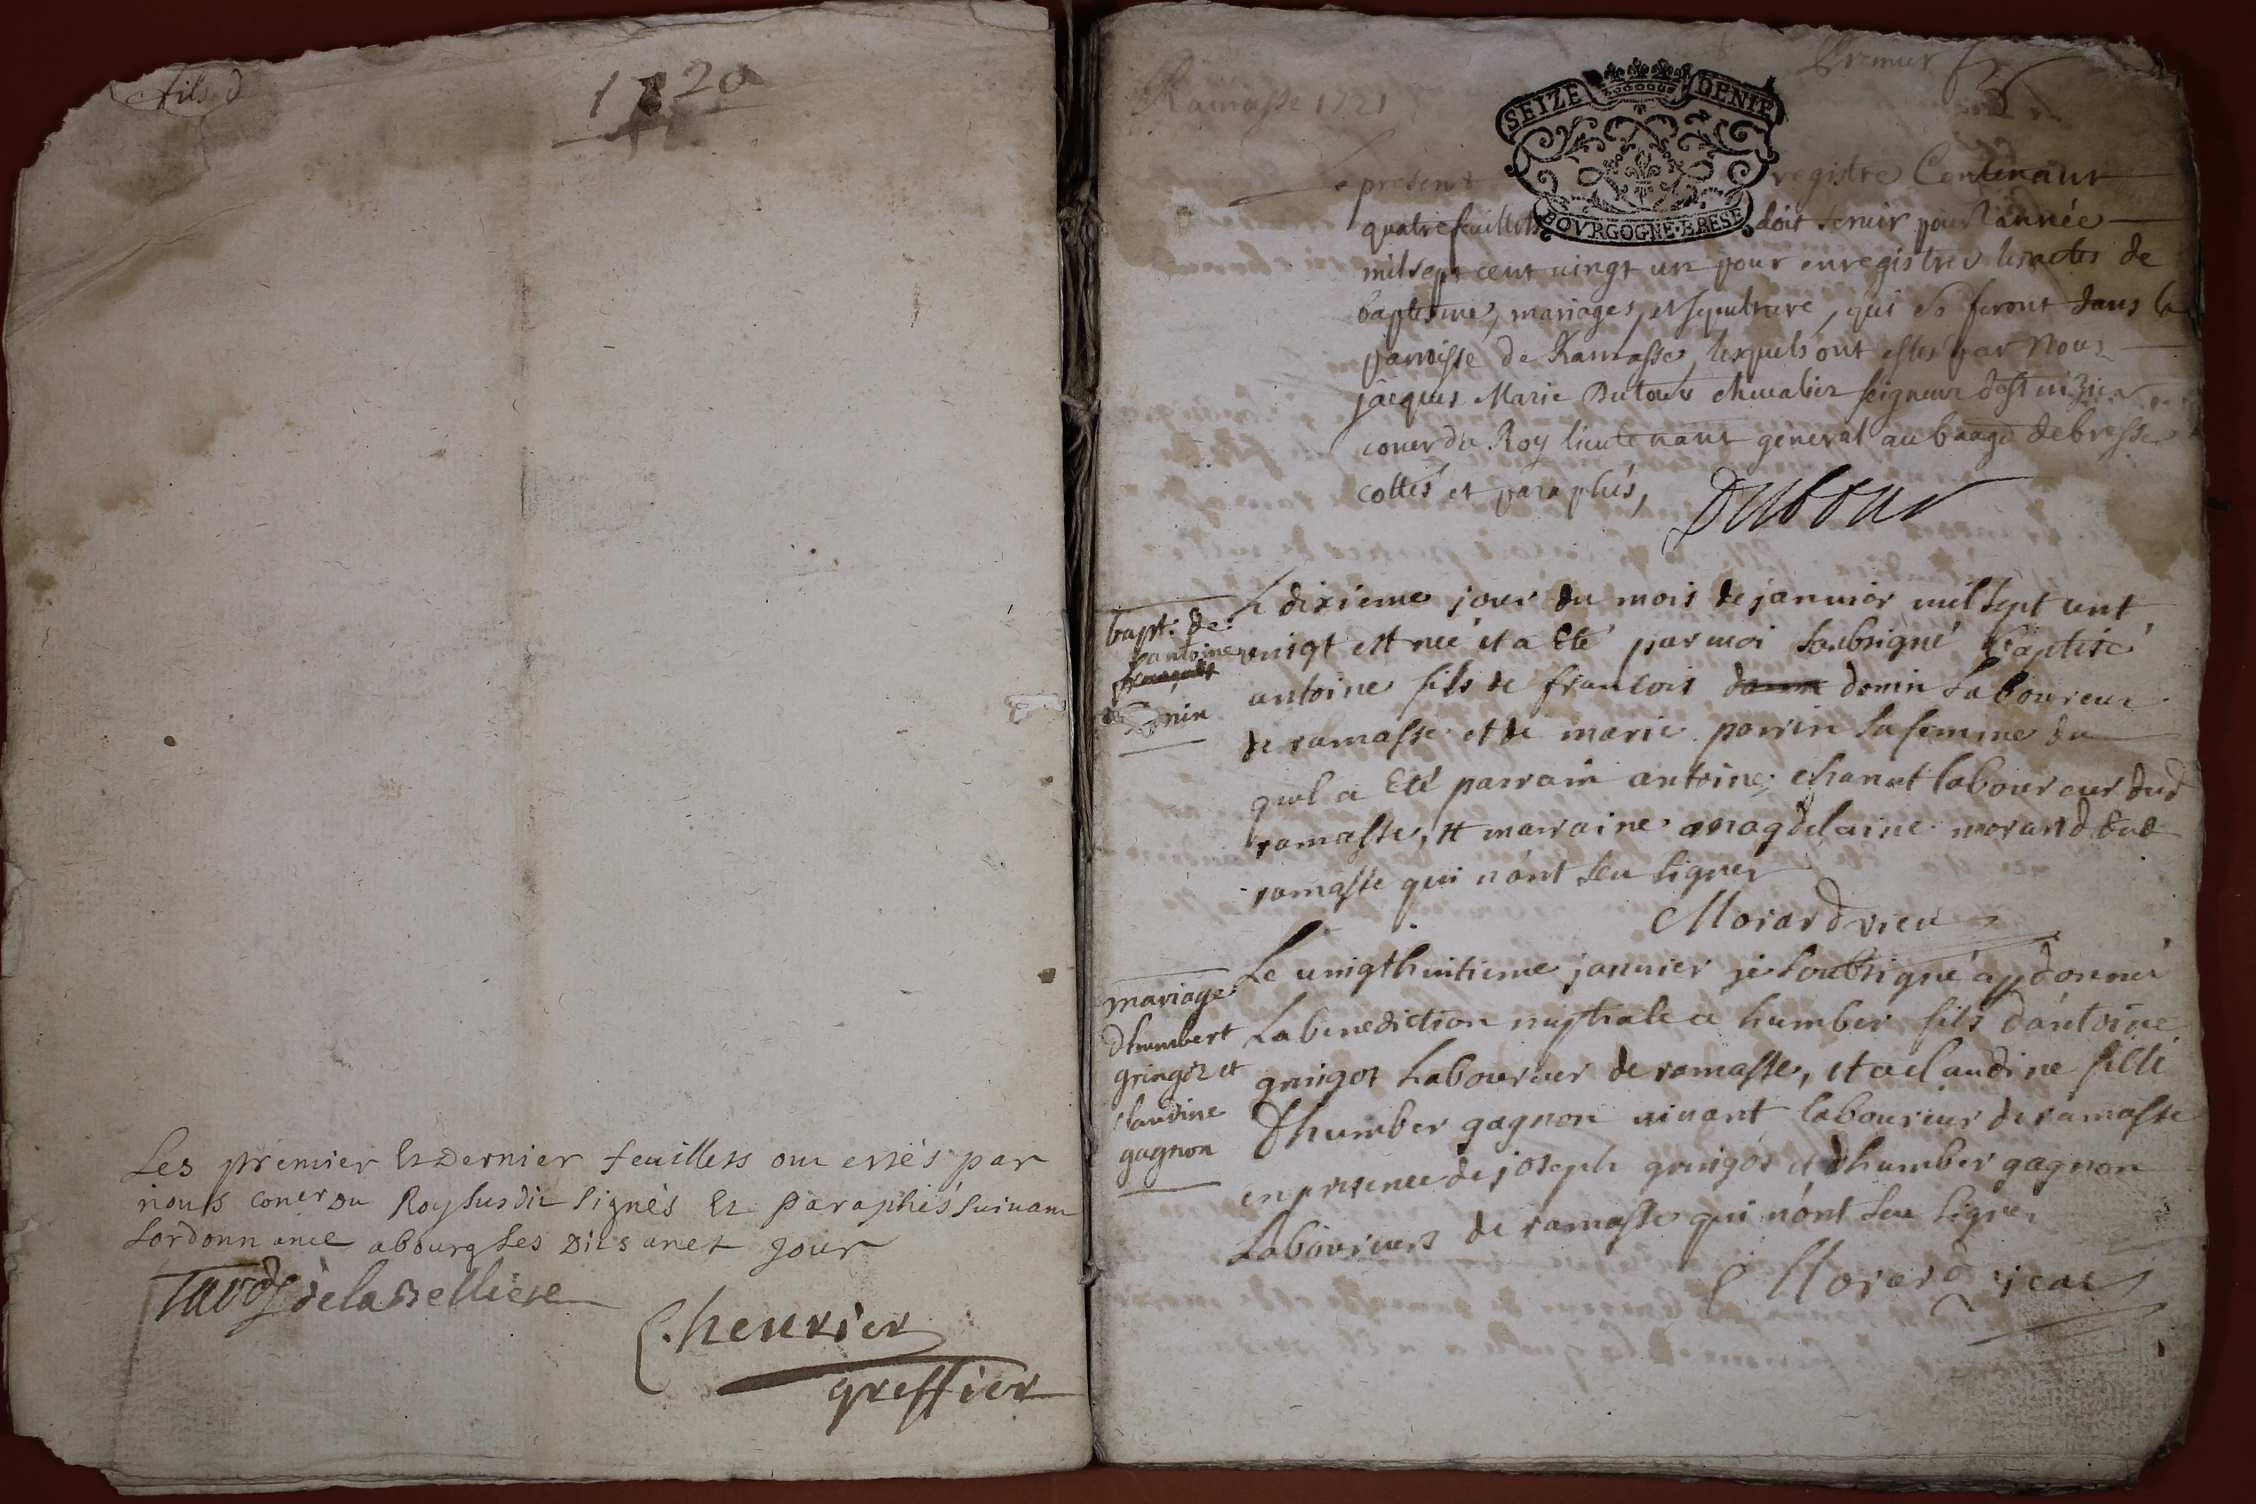 fils d
1720
Les premier Et Dernier feuillets ont estés par
nous coner Du Roy susdit signés Et Paraphés suivant
Lordonnance abourg Les Dits an et jour
de la Belliere
Chevrier
greffier
Ramasse 1721
Premier
SEIZE DENIE
BOVRGOGNE·BRESE
Le present registre Contenant
quatre feuillets doit servir pour l'année
mil sept cent vingt un pour enregistrer les actes de
baptesme, mariages, et sepulture, qui se feront dans la
parroisse de Ramasse, lesquels ont estes par Nous
jacques Marie Dutour chevalier seigneur
coner du Roy lieutenant general au baage de bresse
cottés et paraphés,
Dutour
bapt: de
antoine
Donin
Le dixieme jour du mois de janvier mil sept cent
vingt est neé et a Eté par moi soubsigné baptisé
antoine fils de francois donin Laboureur
de ramasse et de marie perrin sa femme du
quel a Eté parrain antoine chanet laboureur dud
ramasse, et marraine magdelaine morand dud
ramasse qui n'ont sçu signer
Morard vicu
mariage
d'humbert
gringoz et
claudine
gagnon
Le vingthuitieme janvier je soubsigné ay donné
La benediction nuptiale a humber fils d'antoine
gringoz Laboureur de ramasse, et a claudine fille
d'humber gagnon vivant laboureur de ramasse
en presence de joseph gringoz et d'humber gagnon
Laboureurs de ramasse qui n'ont sçu signer
Morard vicae